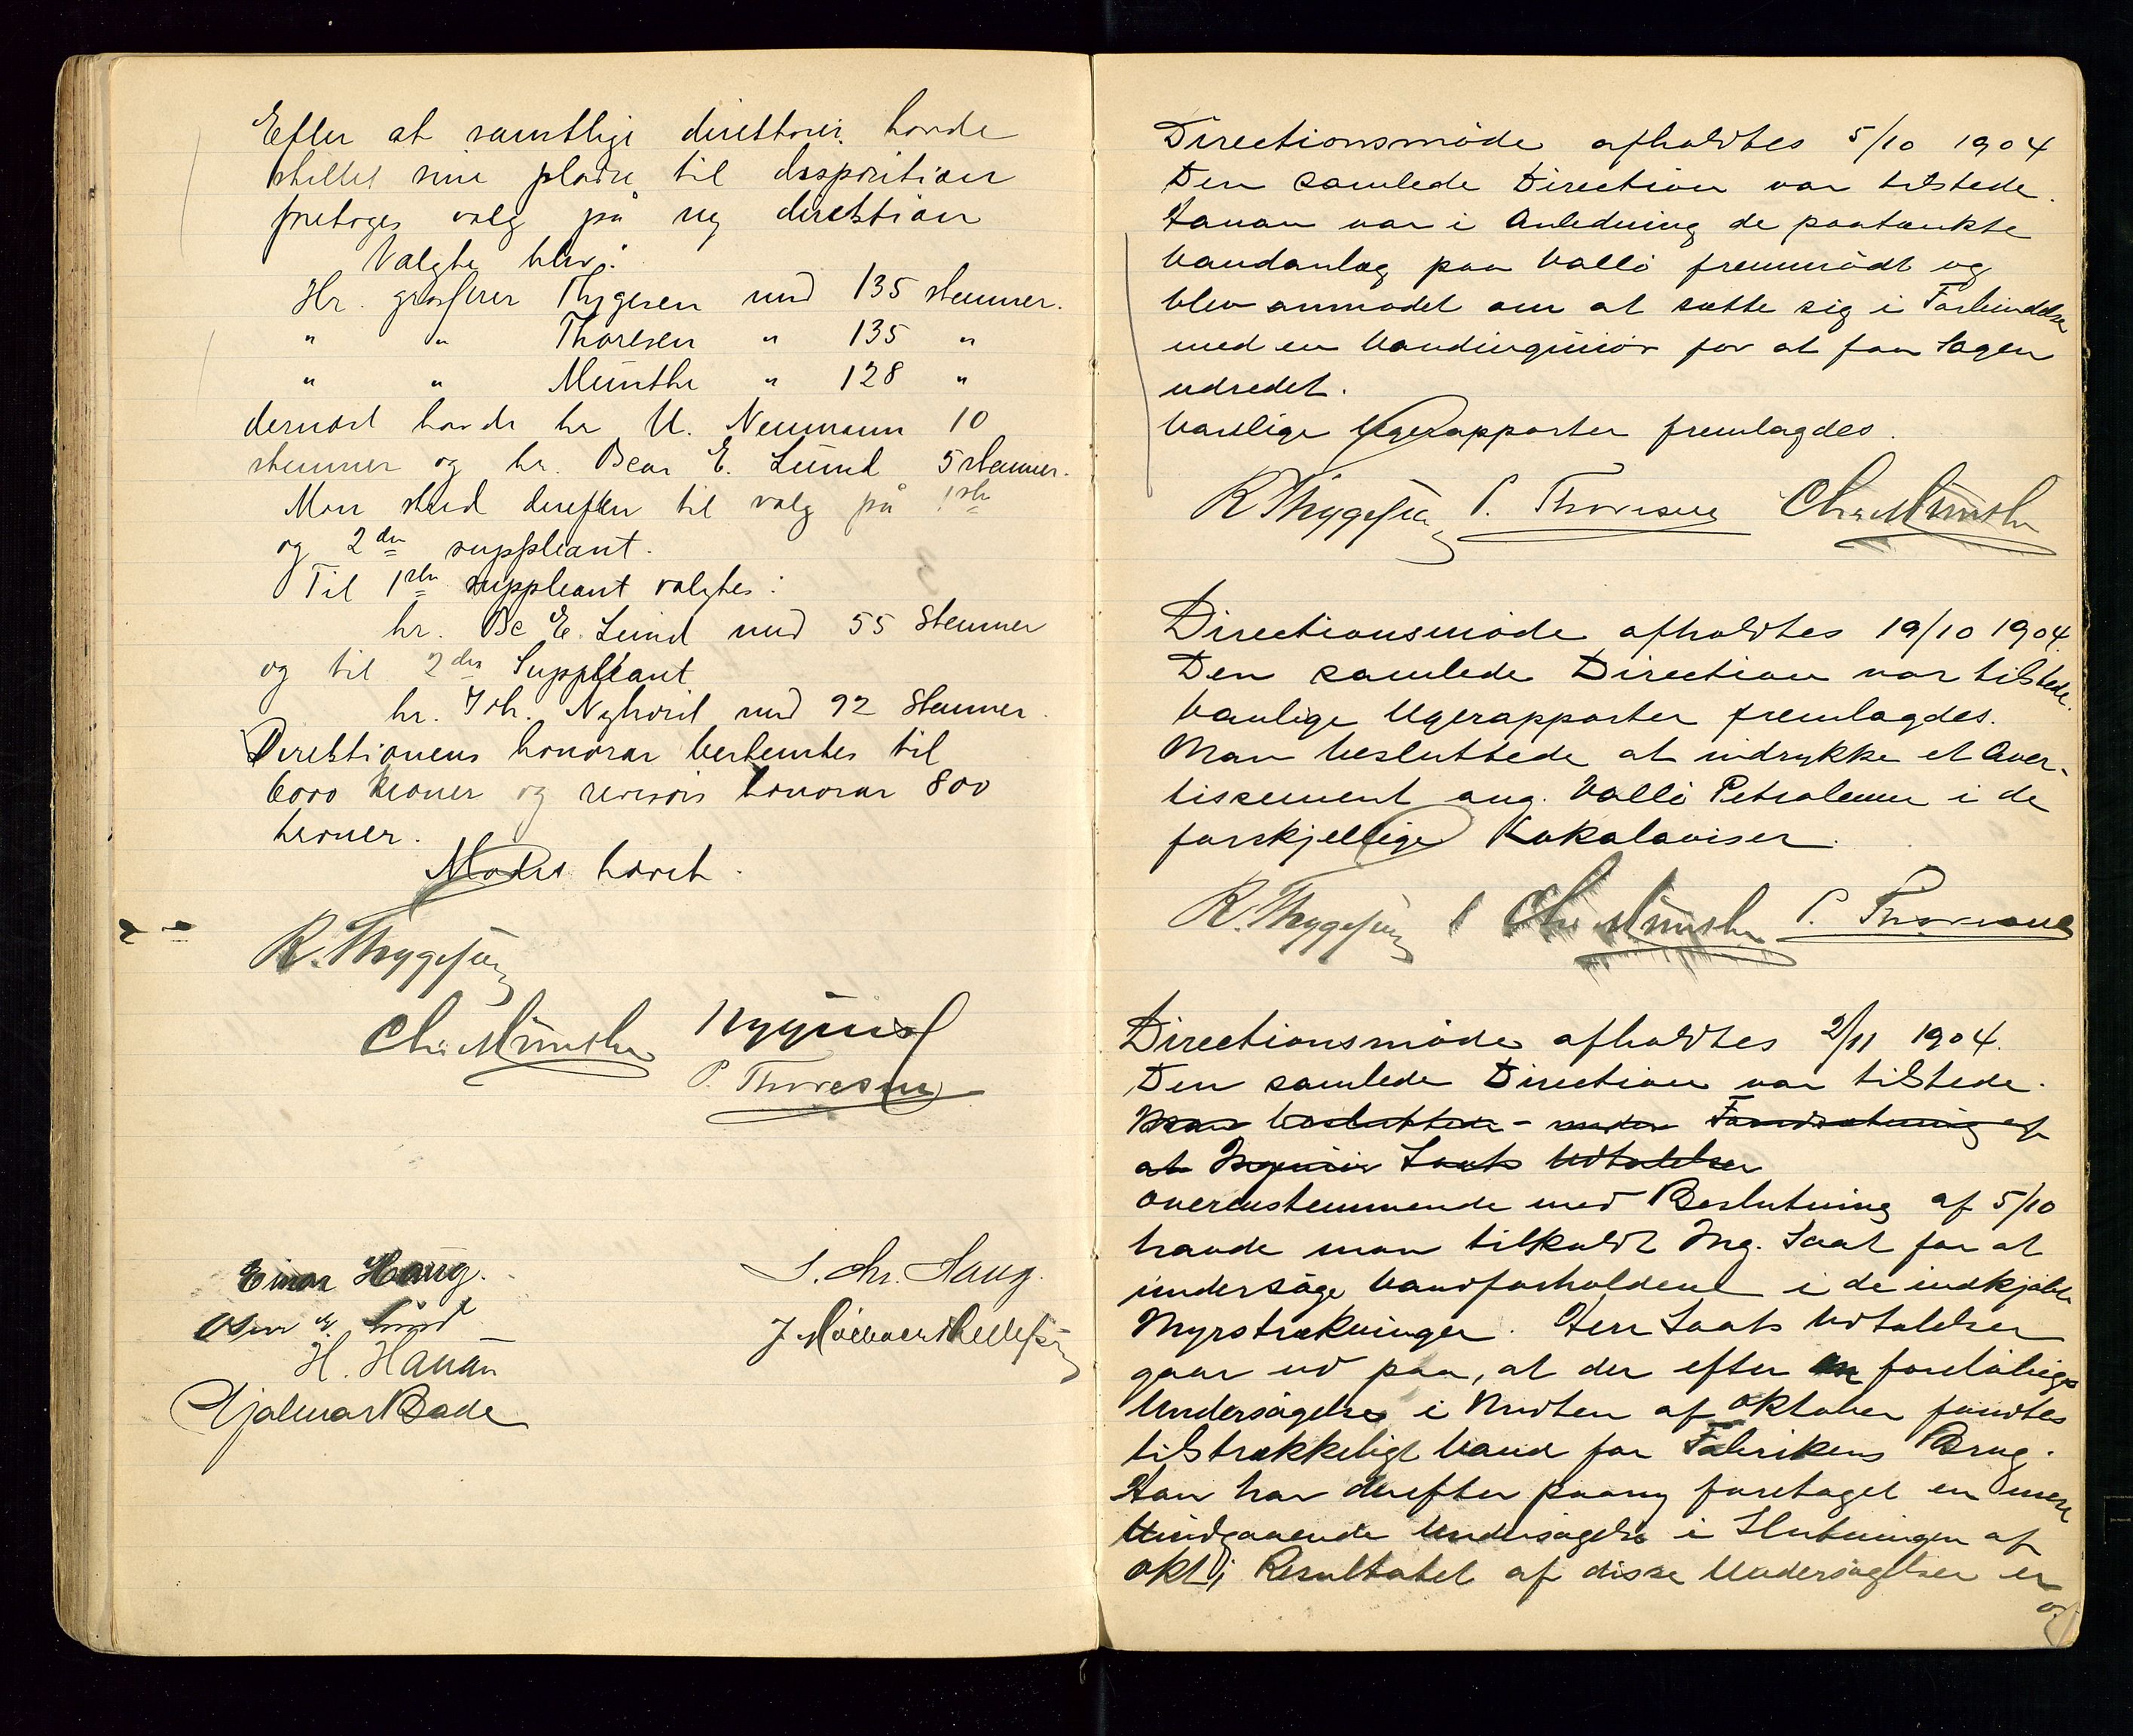 Efter at samtlige direktører havde
stillet sine pladse til disposition
foretoges valg på ny direktion
Valgte blev:
Hr. grosserer Thygesen med 135 stemmer.
" " Thoresen " 135 "
" " Münthe " 128 "
dernæst havde hr U. Neumann 10
stemmer og hr. Oscar E. Lund 5 stemmer.
Man skred derefter til valg på 1ste
og 2den suppleant.
Til 1ste suppleant valgtes:
hr. Osc E. Lund med 55 stemmer
og til 2den Suppleant
hr. Joh. Nyqvist med 92 stemmer.
Direktionens honorar bestemtes til
6000 kroner og revisors honorar 800
kroner.
Mødet hævet.
R. Thygesen
Chr. Münthe Nyqvist
P. Thoresen
Einar Haug. S. Chr. Haug.
Oscar E. Lund
H. Hanan
Hjalmar Bade
Directionsmøde afholdtes 5/10 1904
Den samlede Direction var tilstede.
Hanan var i Anledning de paatænkte
Vandanlæg paa Vallø fremmødt og
blev anmodet om at sætte sig i Forbindelse
med en Vandingeniør for at faa Sagen
udredet.
Vanlige Ugerapporter fremlagdes.
R. Thygesen P. Thoresen Chr. Münthe
Directionsmøde afholdtes 19/10 1904.
Den samlede Direction var tilstede.
Vanlige Ugerapporter fremlagdes.
Man besluttede at indrykke et Aver-
tissement ang. Vallø Petroleum i de
forskjellige Lokalaviser.
R. Thygesen Chr. Münthe P. Thoresen
Directionsmøde afholdtes 2/11 1904.
Den samlede Direction var tilstede.
Man besluttede - under Forudsætning af
at Ingeniør Saats Udtalelser
overenstemmende med Beslutning af 5/10
havde man tilkaldt Ing. Saat for at
undersøge Vandforholdene i de indkjøbte
Myrstrækninger. Herr Saats Udtalelser
gaar ud paa, at der efter en foreløbig
Undersøgelse i Midten af Oktober fandtes
tilstrækkeligt Vand for Fabrikens Brug.
Han har derefter paany foretaget en mere
indgaaende Undersøgelse i Slutningen af
Okt; Resultatet af disse Undersøgelser er